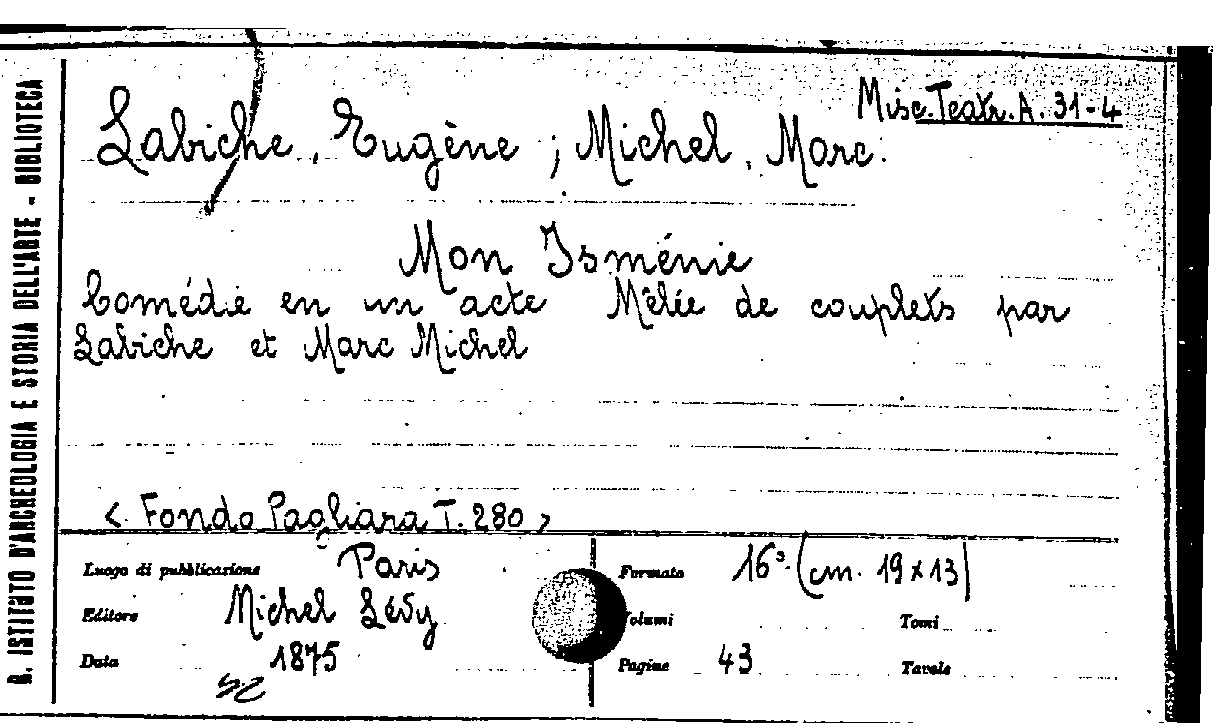 R. ISTITUTO D'ARCHEOLOGIA E STORIA DELL'ARTE - BIBLIOTECA
Misc. Teatr. A. 31-4
Labiche, Eugène ; Michel, Marc.
Mon Isménie
Comédie en un acte Mêlée de couplets par
Labiche et Marc Michel
< Fondo Pagliara T. 280 >
Luogo di pubblicazione Paris
Formato 16º. (cm. 19 x 13)
Editore Michel Lévy
Volumi
Tomi
Data 1875
Pagine 43
Tavole